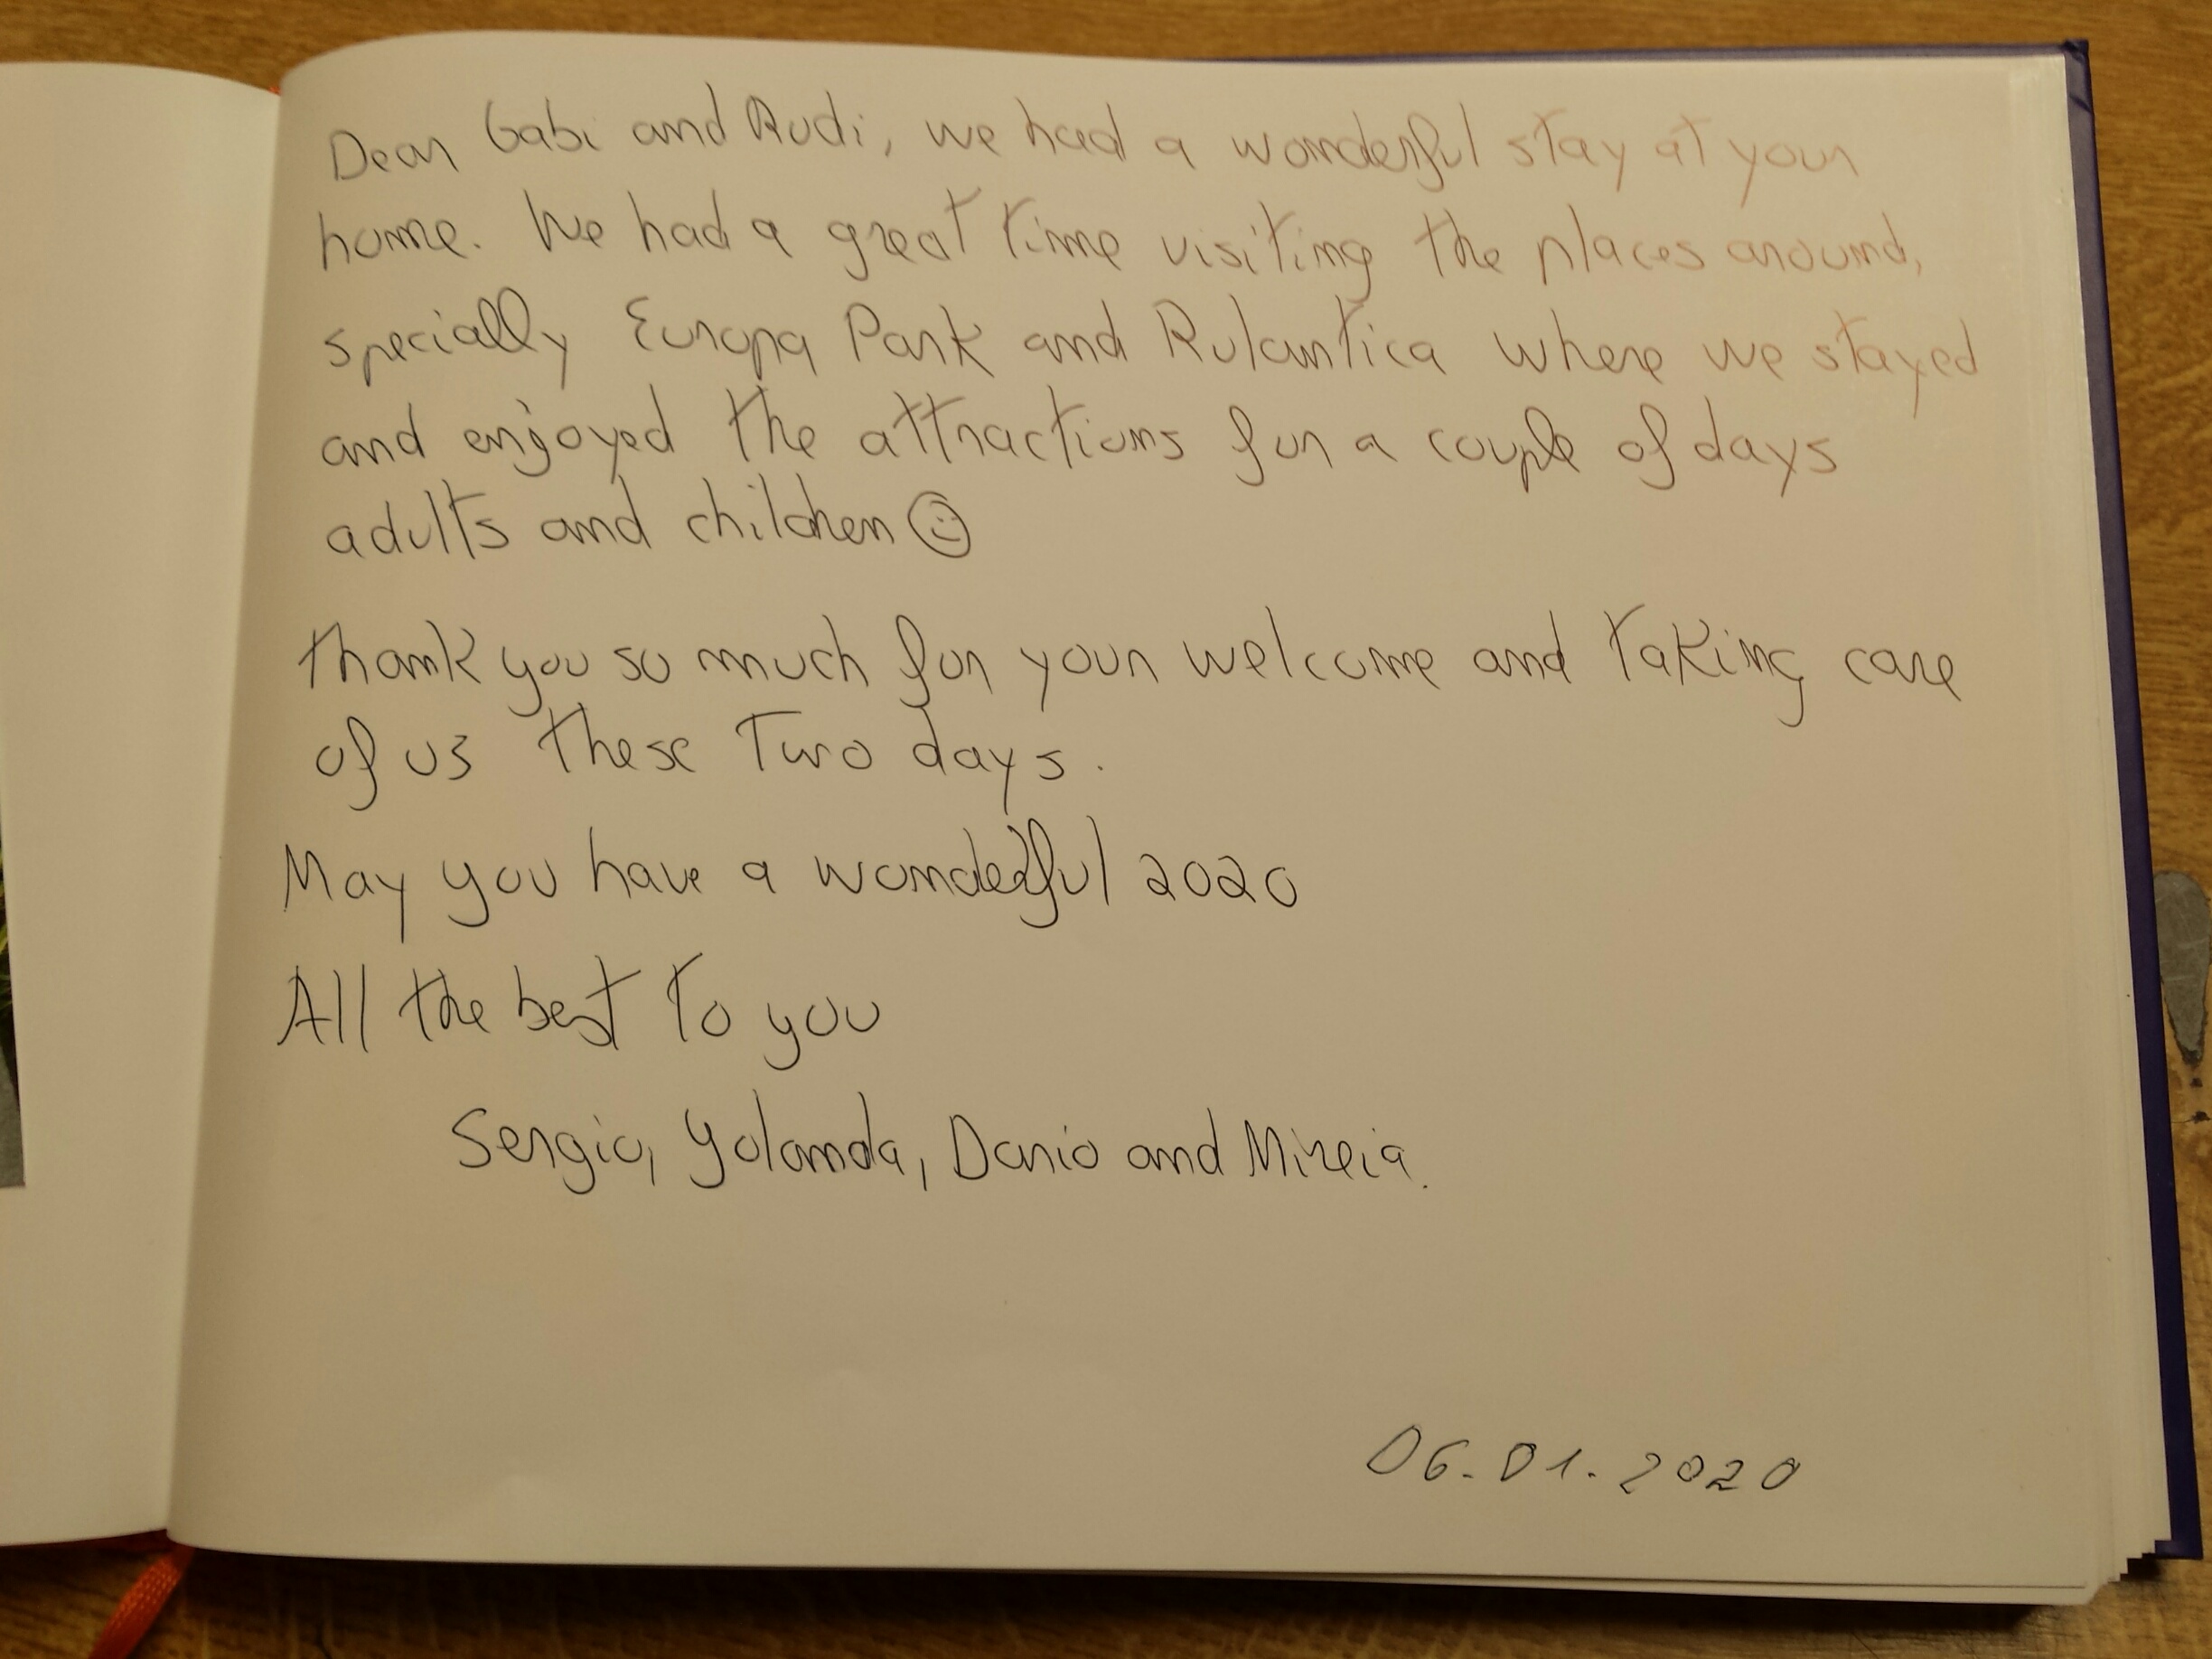 Dear Gabi and Rudi, we had a wonderful stay at your
home. We had a great time visiting the places around,
specially Europa Park and Rulantica where we stayed
and enjoyed the attractions for a couple of days
adults and children ☺
thank you so much for your welcome and taking care
of us these two days.
May you have a wonderful 2020
All the best to you
Sergio, Yolanda, Dario and Mireia.
06.01.2020